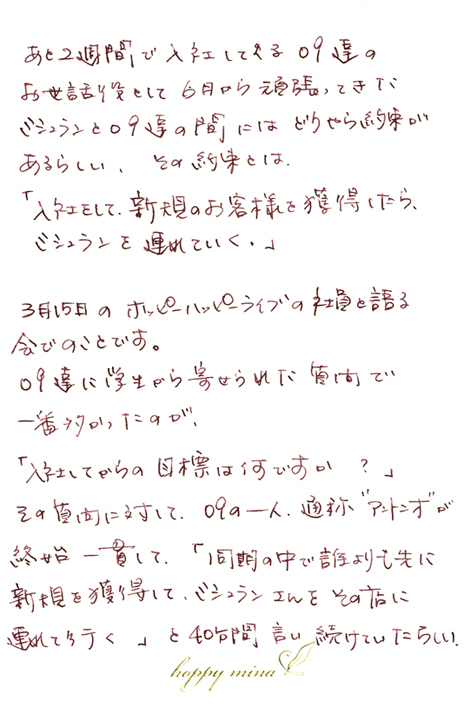 あと2週間で入社してくる09達の
お世話役として6月から頑張ってきた
ビシュランと09達の間にはどうやら約束が
あるらしい、その約束とは、
「入社をして、新規のお客様を獲得したら、
ビシュランを連れていく。」
3月15日のホッピーハッピーライブの社員と語る
会でのことです。
09達に学生から寄せられた質問で
一番多かったのが、
「入社してからの目標は何ですか?」
その質問に対して、09の一人、通称"アントニオ"が
終始一貫して、「同期の中で誰よりも先に
新規を獲得して、ビシュランさんをその店に
連れて行く」と40分間言い続けていたらしい。
happy mina